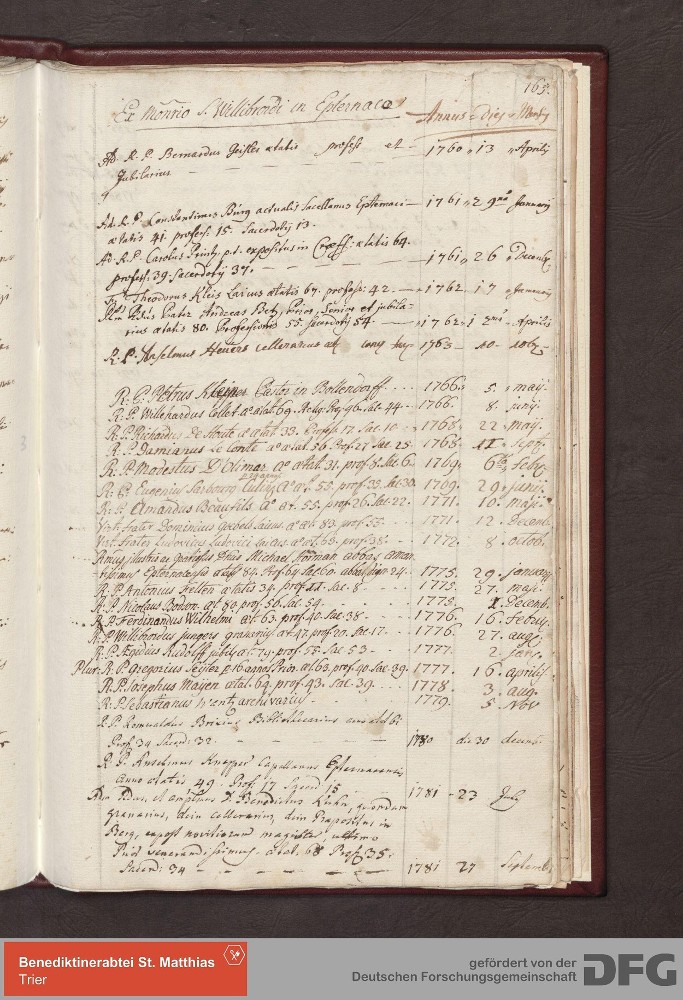 165.
Ex Monrio S. Willibrordi in Epternaco Annus Dies Mensis
Ad. R. P. Bernardus Geisler ætatis profess. et 1760 13 Aprilis
Jubilarius
Ad. R. P. Constantinus Bürg actualis Sacellanus Epternaci 1761 29 Januarij
ætatis 41. profess. 15. Sacerdotij 13.
Ad. R. P. Carolus p.t. expositus in ætatis 64. 1761 26 Decemb.
profess. 39. Sacerdotij 37.
Theodorus Kleis Laicus ætatis 67. profess. 42. 1762. 17 Januarij
Pater Andreas Betz, Prior, Senior et jubila- 1762. Aprilis
rius ætatis 80. Professionis 55. Sacerdotij 54.
R. P. Anselmus Heuers cellerarius 1763 10 8bris
R. P. Petrus Klepper Pastor in Bollendorff. 1766. 5. maij
R. P. Willehardus Collet ætat. 69. Sac. 44. 1766. 8. junij
R. P. Richardus De Stoute æ ætat. 33. Prof. 17 Sac. 10 1768. 22 maij.
R. P. Damianus Le Conte æ ætat. 56. Prof. 27 Sac. 25 1768. Sept.
R. P. Modestus D'Olimar æ ætat. 31. prof. 8. Sac. 6. 1769. 6ta febr.
R. P. Eugenius Sarbourg æ æt. 55. prof. 33. sac. 30. 1769. 29. junij
R. P. Amandus Beaufils æ æt. 55. prof. 26. Sac. 22. 1771. 10. maji.
Ven. frater Dominicus Goebels Laicus æ æt. 83. prof. 55. 1771. 12. Decemb.
Ven. frater Ludovicus Ludovici laicus æ æt. 63. prof. 38. 1772. 8. octob.
Rmus illustris ac Dnus Michael Horman abbas aman-
tissimus Epternacensis æt. 84. Prof. 64 Sac. 60. 24. 1775. 29. januarij
R. P. Antonius Felten ætatis 34. prof. 11. Sac. 8. 1775. 27. maji.
R. P. Nicolaus Bodson. æt. 80. prof. 56. Sac. 54. 1775. Decemb.
R. P. Ferdinandus Wilhelmi æt. 63. prof. 40. Sac. 38. 1776. 16. februj.
R. P. Willibrordus jungers granarius æt. 47. prof. 20. Sac. 17. 1776. 27. augj.
R. P. Ægidius Rudolff jubil. æt. 79. prof. 55. Sac. 53. 1777. 2. jan.
Plur. R. P. Gregorius Geisler p. 16 annos Prior. æt. 63. prof. 40. Sac. 39. 1777. 16. aprilis
R. P. Josephus Mayen ætat. 64. prof. 43. Sac. 39. 1778. 3. aug.
R. P. Sebastianus Wentz archivarius 1779. 5. Nov
R. P. Romualdus Brixius Bibliothecarius
Prof. 34 Sacerd. 32. 1780 die 30 decemb.
R. P. Anselmus Knepper Capellanus Epternacensis
anno ætatis 49. Prof. 17 Sacerd. 15 1781 23 July
Adm. Rdus, et amplius D. Benedictus Kuhn, quondam
granarius, dein cellerarius, dein Præpositus in
Berg, ex post novitiorum magister, ultimo
ætat. 68 Prof. 35.
Sacerd. 34 1781 27 Septembr.
Benediktinerabtei St. Matthias
Trier
gefördert von der
Deutschen Forschungsgemeinschaft
DFG